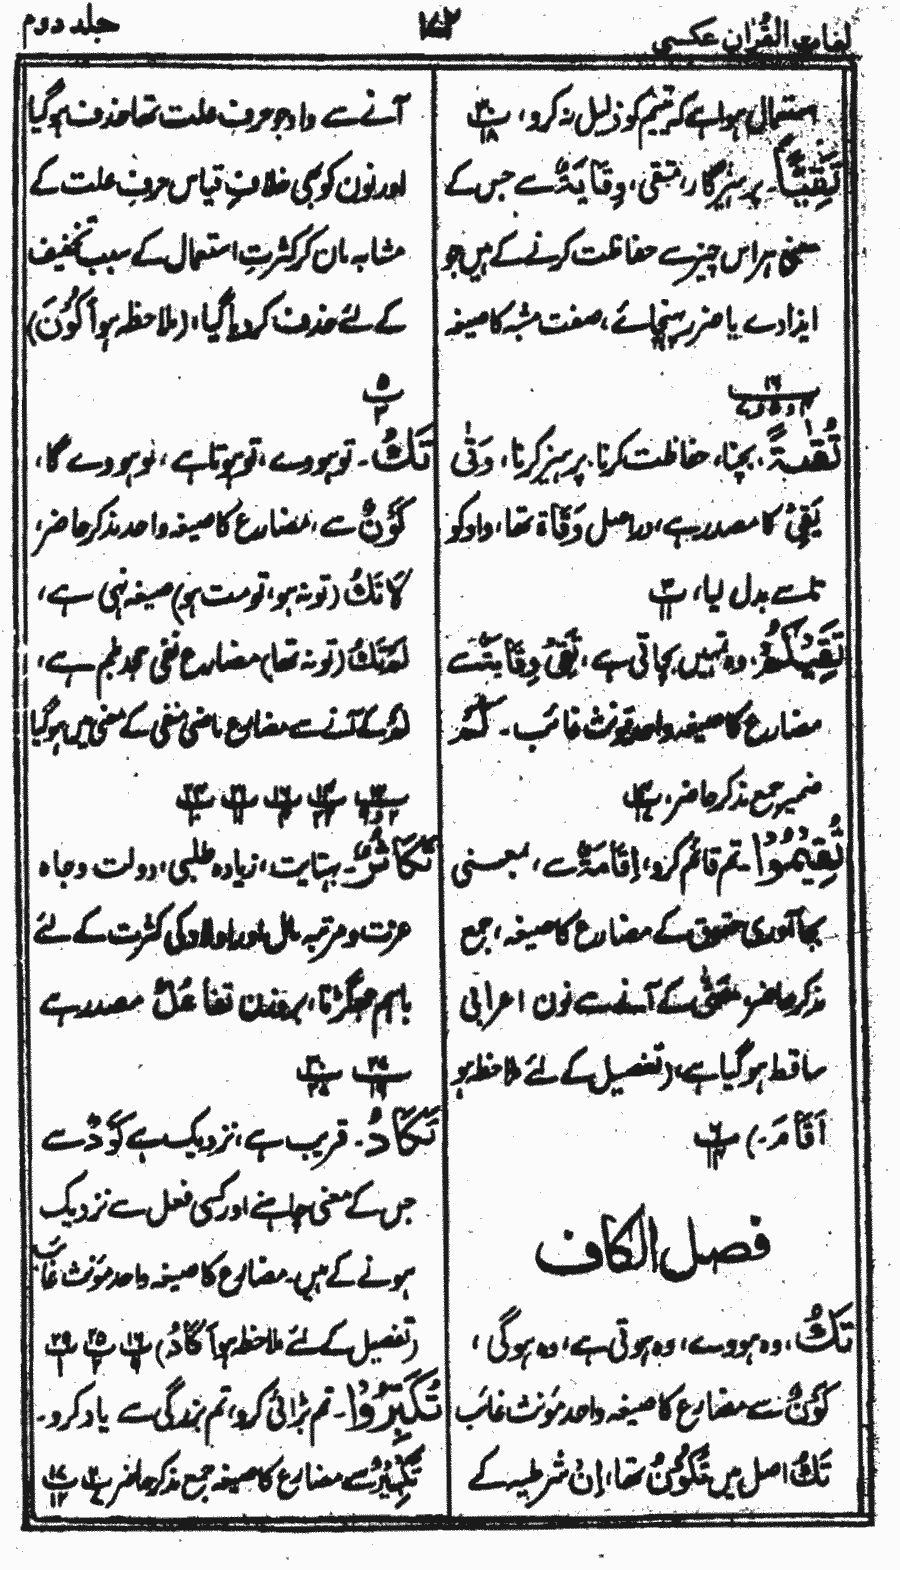 لغات القرآن عکسی
۱۷۲
جلد دوم
استعمال ہوا ہے کہ یتیم کو ذلیل نہ کرو، پ۳۰ ۱۸
تَقِیًّا۔ پرہیزگار، متقی، وِقَایَۃٌ سے جس کے
معنی ہر اس چیز سے حفاظت کرنے کے ہیں جو
ایذا دے یا ضرر پہنچائے، صفت مشبہ کا صیغہ
پ۱۶
تُقٰىۃً۔ بچنا، حفاظت کرنا۔ پرہیز کرنا، وَقٰی
یَقِیْ کا مصدر ہے، دراصل وَقَاۃ تھا، واو کو
تا سے بدل لیا، پ۳ ۱۱
تَقِیْکُمْ۔ وہ تمہیں بچاتی ہے، تَقِیْ وِقَایَۃٌ سے
مضارع کا صیغہ واحد مؤنث غائب۔ کُمْ
ضمیر جمع مذکر حاضر، پ۱۴
تُقِیْمُوْا۔ تم قائم کرو، اِقَامَۃٌ سے، بمعنی
بجا آوری حقوق کے مضارع کا صیغہ، جمع
مذکر حاضر، حَتّٰی کے آنے سے نون اعرابی
ساقط ہو گیا ہے، (تفصیل کے لئے ملاحظہ ہو
اَقَامَ۔) پ۶
فصل الکاف
تَکُ، وہ ہووے، وہ ہوتی ہے، وہ ہوگی،
کَوْنٌ سے مضارع کا صیغہ واحد مؤنث غائب
تَکُ اصل میں تَکُوْنُ تھا، اِنْ شرطیہ کے
آنے سے واو جو حرف علت تھا حذف ہو گیا
اور نون کو بھی خلافِ قیاس حرف علت کے
مشابہ مان کر کثرتِ استعمال کے سبب تخفیف
کے لئے حذف کر دیا گیا، (ملاحظہ ہو اَکُوْنَ)
پ۵ ۳
تَکُ۔ تو ہووے، تو ہوتا ہے، تو ہووے گا،
کَوْنٌ سے، مضارع کا صیغہ واحد مذکر حاضر،
لَا تَکُ (تو نہ ہو، تو مت ہو) صیغہ نہی ہے،
لَمْ تَکُ (تو نہ تھا) مضارع نفی جحد بلم ہے،
لَمْ کے آنے سے مضارع ماضی منفی کے معنی میں ہو گیا
تَکَاثُرٌ۔ بہتایت، زیادہ طلبی، دولت و جاہ
عزت و مرتبہ مال اور اولاد کی کثرت کے لئے
باہم جھگڑنا، بروزن تَفَاعُلٌ مصدر ہے
پ۲۷ ۱۹ پ۳۰ ۲۷
تَکَادُ۔ قریب ہے، نزدیک ہے کَوْدٌ سے
جس کے معنی چاہنے اور کسی فعل سے نزدیک
ہونے کے ہیں۔ مضارع کا صیغہ واحد مؤنث غائب
(تفصیل کے لئے ملاحظہ ہو اَکَادُ) پ۱۶ ۹ پ۲۵ ۲ پ۲۹ ۱
تُکَبِّرُوْا۔ تم بڑائی کرو، تم بزرگی سے یاد کرو۔
تَکْبِیْرٌ سے مضارع کا صیغہ جمع مذکر حاضر پ۲ ۷ پ۱۷ ۱۲